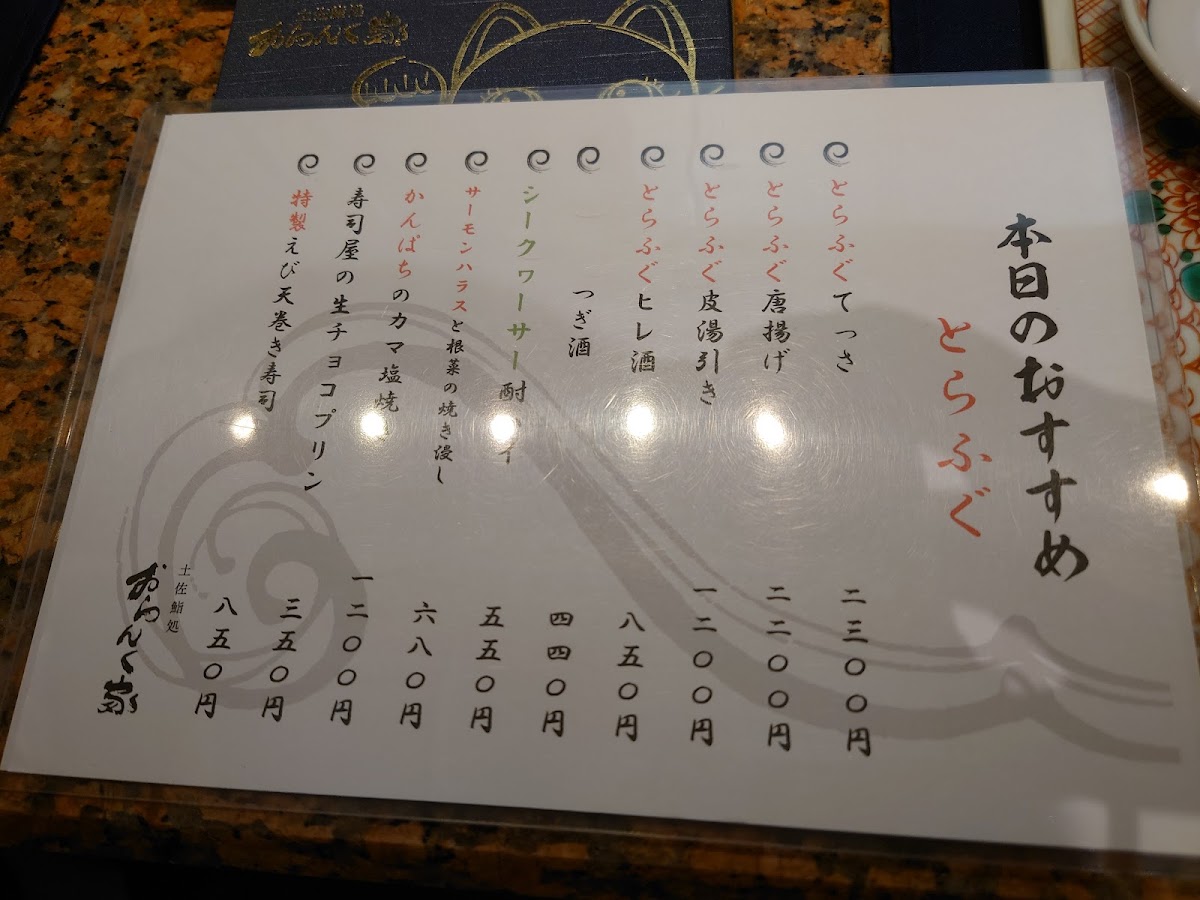 本日のおすすめ
とらふぐ
とらふぐてっさ
二三〇〇円
とらふぐ唐揚げ
二二〇〇円
とらふぐ皮湯引き
一二〇〇円
とらふぐヒレ酒
八五〇円
つぎ酒
四四〇円
シークヮーサー酎ハイ
五五〇円
サーモンハラスと根菜の焼き浸し
六八〇円
かんぱちのカマ塩焼
一二〇〇円
寿司屋の生チョコプリン
三五〇円
特製えび天巻き寿司
八五〇円
土佐鮨処
おらんく家
おらんく家